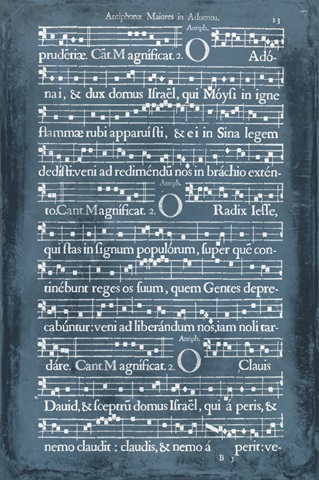 Antiphonæ Maiores in Aduentu. 13
Antiph.
prudétiæ. Cāt. Magníficat. 2. O Adó-
nai, & dux domus Iſraël, qui Móyſi in igne
flammæ rubi apparuíſti, & ei in Sina legem
dedíſti: veni ad rediméndū nos in bráchio extén-
Antiph.
to. Cant. Magníficat. 2. O Radix Ieſſe,
qui ſtas in ſignum populórum, ſuper quē con-
tinébunt reges os ſuum, quem Gentes depre-
cabúntur: veni ad liberándum nos, iam noli tar-
Antiph.
dáre. Cant. Magníficat. 2. O Clauis
Dauid, & ſceptrū domus Iſraël, qui áperis, &
nemo claudit: claudis, & nemo áperit: ve-
B 3